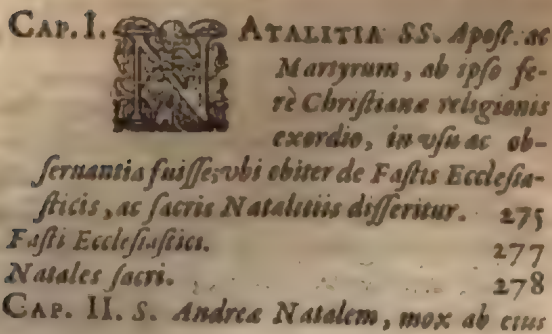 CAP. I. NATALITIA SS. Apoſt. ac
Martyrum, ab ipſo fe-
rè Chriſtianæ religionis
exordio, in vſu ac ob-
ſeruantia fuiſſe; vbi obiter de Faſtis Eccleſia-
ſticis, ac ſacris Natalitiis diſſeritur. 275
Faſti Eccleſiaſtici. 277
Natales ſacri. 278
CAP. II. S. Andreæ Natalem, mox ab eius